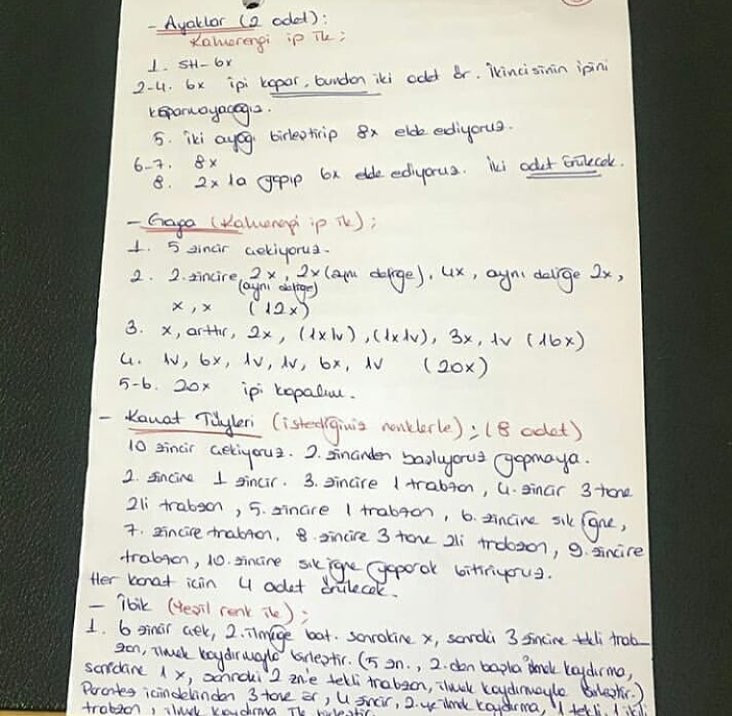 - Ayaklar (2 adet):
Kahverengi ip ile;
1. SH-6x
2-4. 6x ipi kopar, bundan iki adet ör. İkincisinin ipini
koparmayacağız.
5. iki ayağı birleştirip 8x elde ediyoruz.
6-7. 8x
8. 2x la yapıp 6x elde ediyoruz. İki adet örülecek.
- Gaga (Kahverengi ip ile);
1. 5 zincir çekiyoruz.
2. 2. zincire 2x, 2x (aynı deliğe), 4x, aynı deliğe 2x,
(aynı deliğe)
x, x (12x)
3. x, arttır, 2x, (1x1v), (1x1v), 3x, 1v (16x)
4. 1v, 6x, 1v, 1v, 6x, 1v (20x)
5-6. 20x ipi kopalım.
- Kanat Tüyleri (istediğiniz renklerle); (8 adet)
10 zincir çekiyoruz. 2. zincirden başlıyoruz yapmaya.
2. zincire 1 zincir. 3. zincire 1 trabzan, 4. zincir 3 tane
2li trabzan, 5. zincire 1 trabzan, 6. zincire sık iğne,
7. zincire trabzan, 8. zincire 3 tane 2li trabzan, 9. zincire
trabzan, 10. zincire sık iğne yaparak bitiriyoruz.
Her kanat için 4 adet örülecek.
- İbik (Yeşil renk ile);
1. 6 zincir çek, 2. ilmeğe bat. sonrakine x, sonraki 3 zincire tekli trab-
zan, ilmek kaydırmayla birleştir. (5 zn., 2. den başla ilmek kaydırma,
sonrakine 1x, sonraki 2 zn'e tekli trabzan, ilmek kaydırmayla birleştir.)
Parantez içindekinden 3 tane ör, 4 zincir, 2. ye ilmek kaydırma, 1 tekli, 1 ikili
trabzan, ilmek kaydırma ile birleştir.